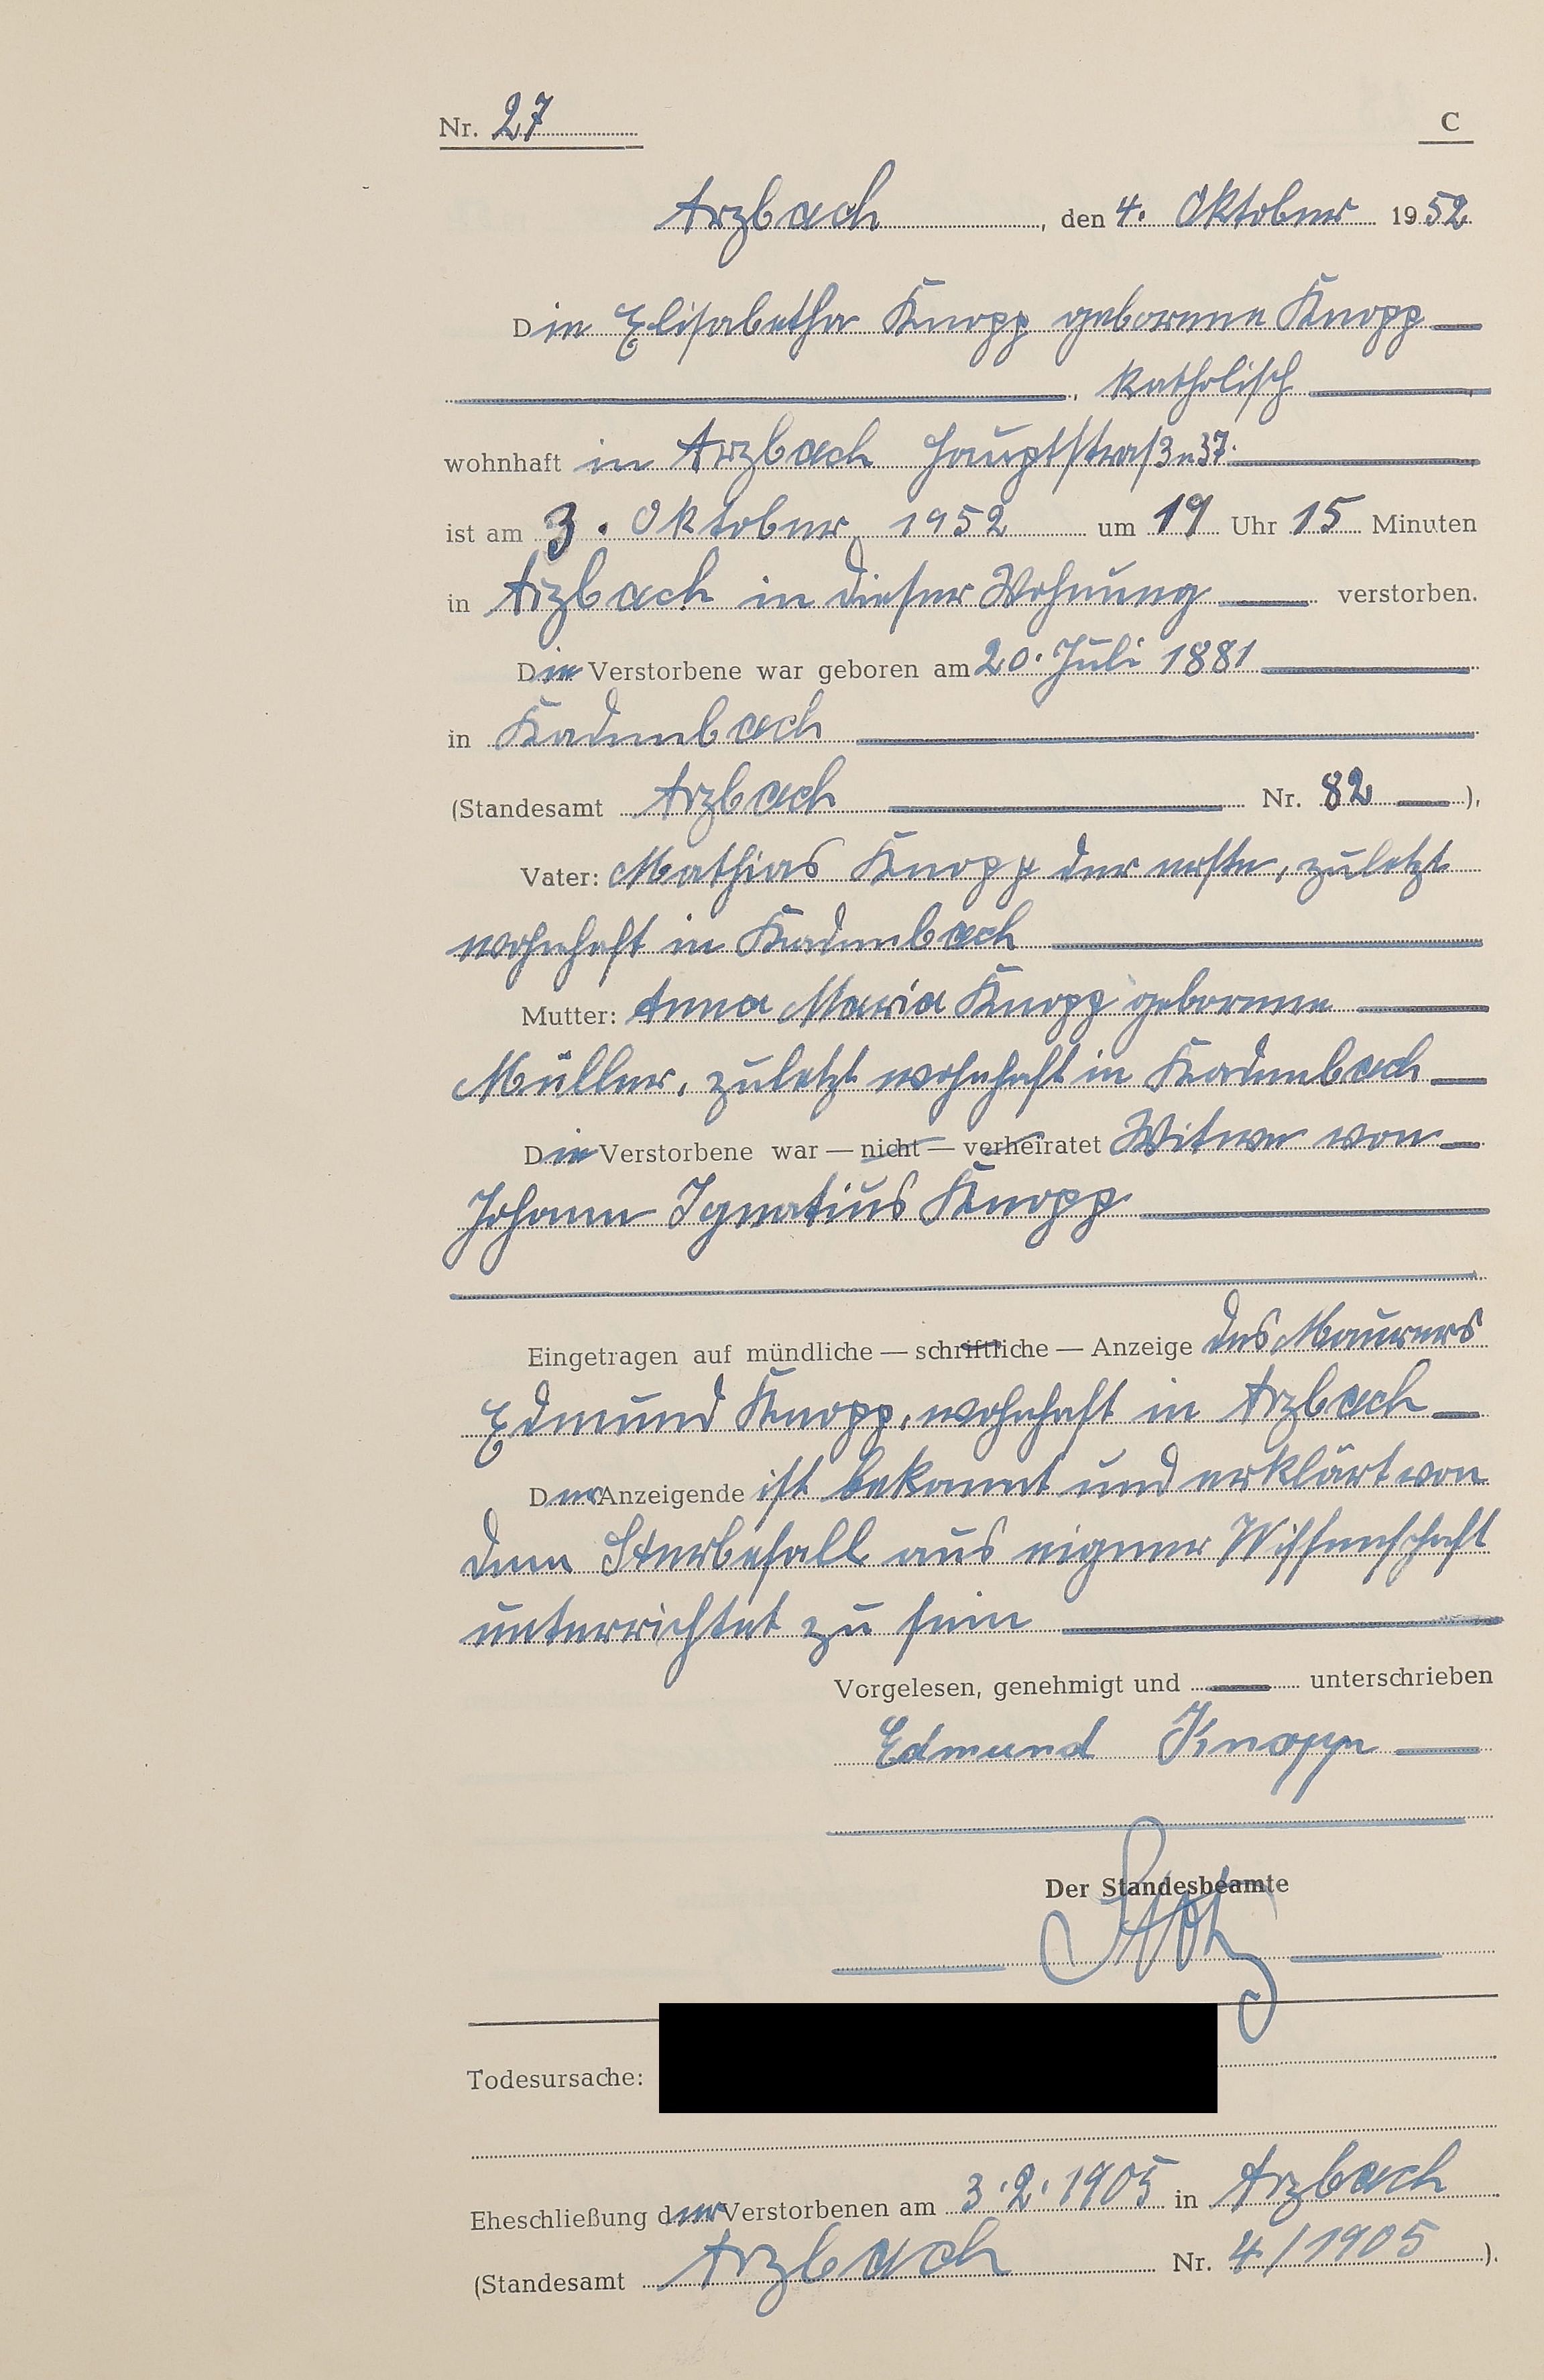 Nr. 27 C
Arzbach, den 4. Oktober 1952
Die Elisabetha Knopp geborene Knopp
, katholisch
wohnhaft in Arzbach Hauptstraße 37.
ist am 3. Oktober 1952 um 19 Uhr 15 Minuten
in Arzbach in dieser Wohnung verstorben.
Die Verstorbene war geboren am 20. Juli 1881
in Kadenbach
(Standesamt Arzbach Nr. 82 ),
Vater: Mathias Knopp der erste, zuletzt
wohnhaft in Kadenbach
Mutter: Anna Maria Knopp geborene
Müller, zuletzt wohnhaft in Kadenbach
Die Verstorbene war — nicht — verheiratet Witwe von
Johann Ignatius Knopp
Eingetragen auf mündliche — schriftliche — Anzeige des Maurers
Edmund Knopp, wohnhaft in Arzbach
Der Anzeigende ist bekannt und erklärt von
dem Sterbefall aus eigener Wissenschaft
unterrichtet zu sein
Vorgelesen, genehmigt und unterschrieben
Edmund Knopp
Der Standesbeamte
Todesursache:
Eheschließung der Verstorbenen am 3.2.1905 in Arzbach
(Standesamt Arzbach Nr. 4/1905 ).